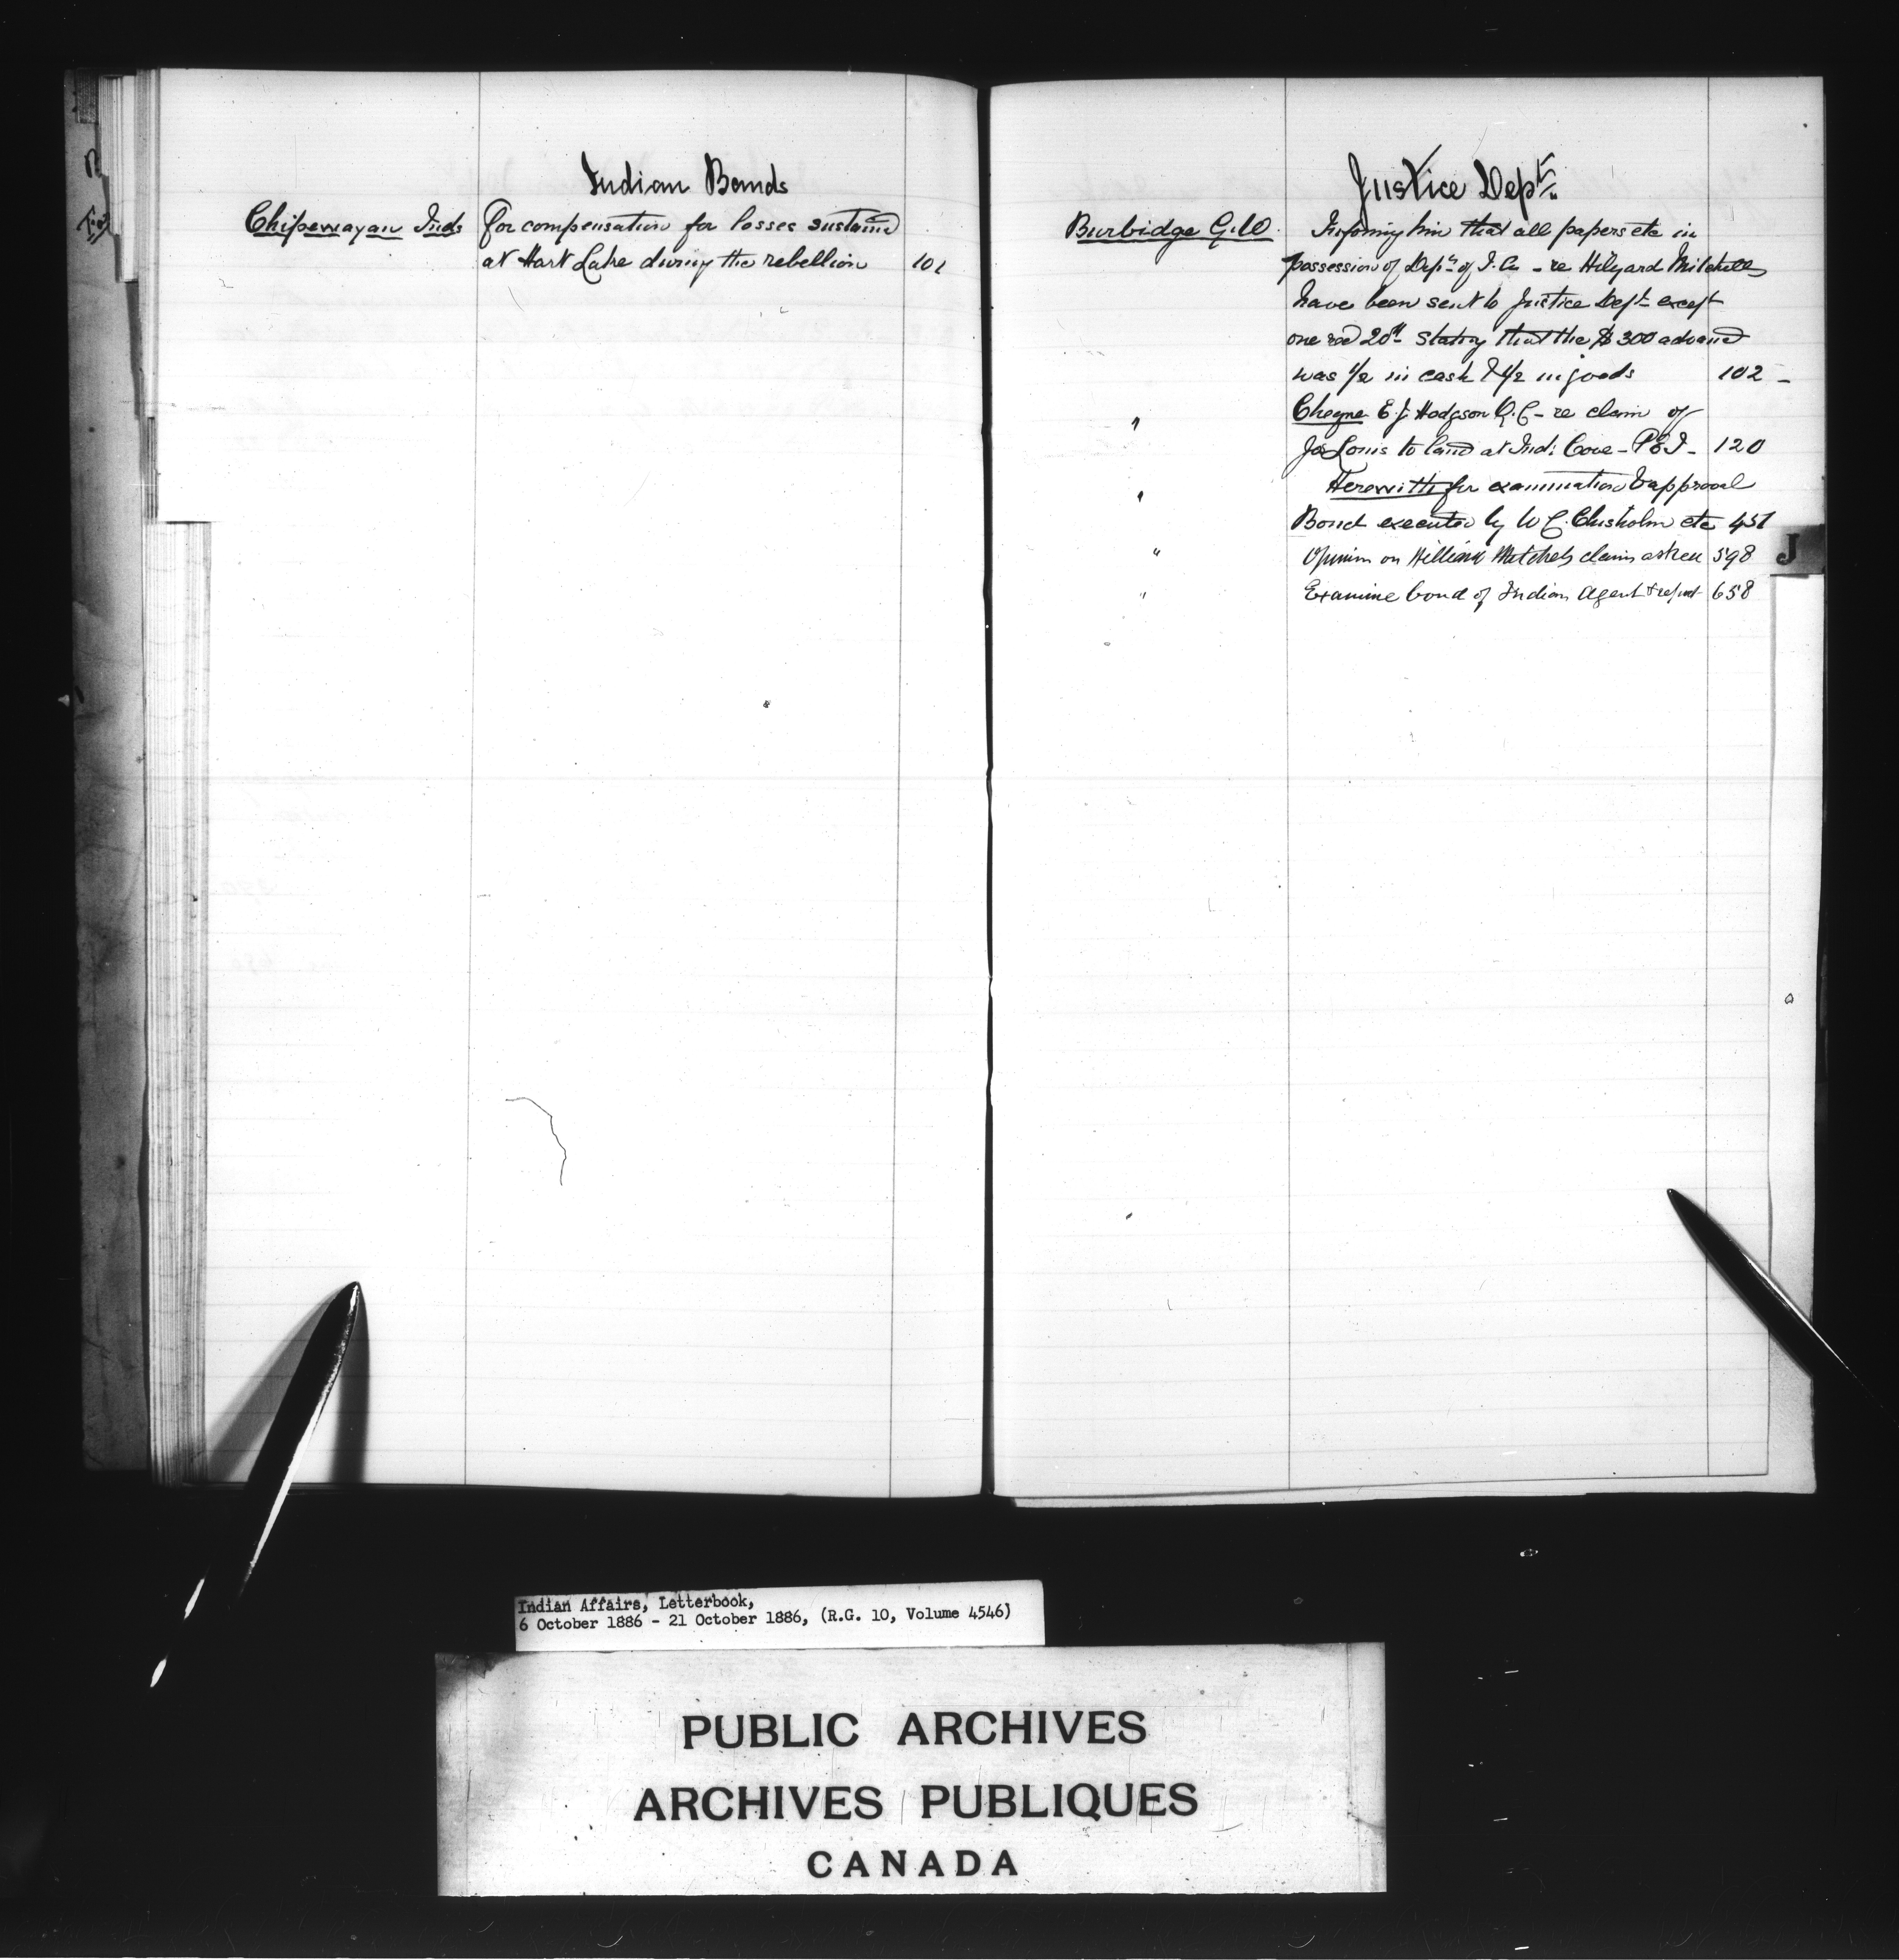 Indian Bands
Chipewayan Inds For compensation for losses sustained
at Hart Lake during the rebellion 101
Justice Dept.
Burbidge G.W. Informing him that all papers etc in
possession of Dept. of I. A. - re Hilyard Mitchell
have been sent to Justice Dept except
one recd 20th stating that the $300 advanced
was 1/2 in cash & 1/2 in goods 102 -
" Cheque E. J. Hodgson Q.C - re claim of
Jos Louis to land at Ind: Cove - P.E.I - 120
" Herewith for examination & approval
Bond executed by W C. Chisholm etc 451
" Opinion on William Mitchels claim asked 598
" Examine bond of Indian Agent & report 658
J
Indian Affairs, Letterbook,
6 October 1886 - 21 October 1886, (R.G. 10, Volume 4546)
PUBLIC ARCHIVES
ARCHIVES PUBLIQUES
CANADA